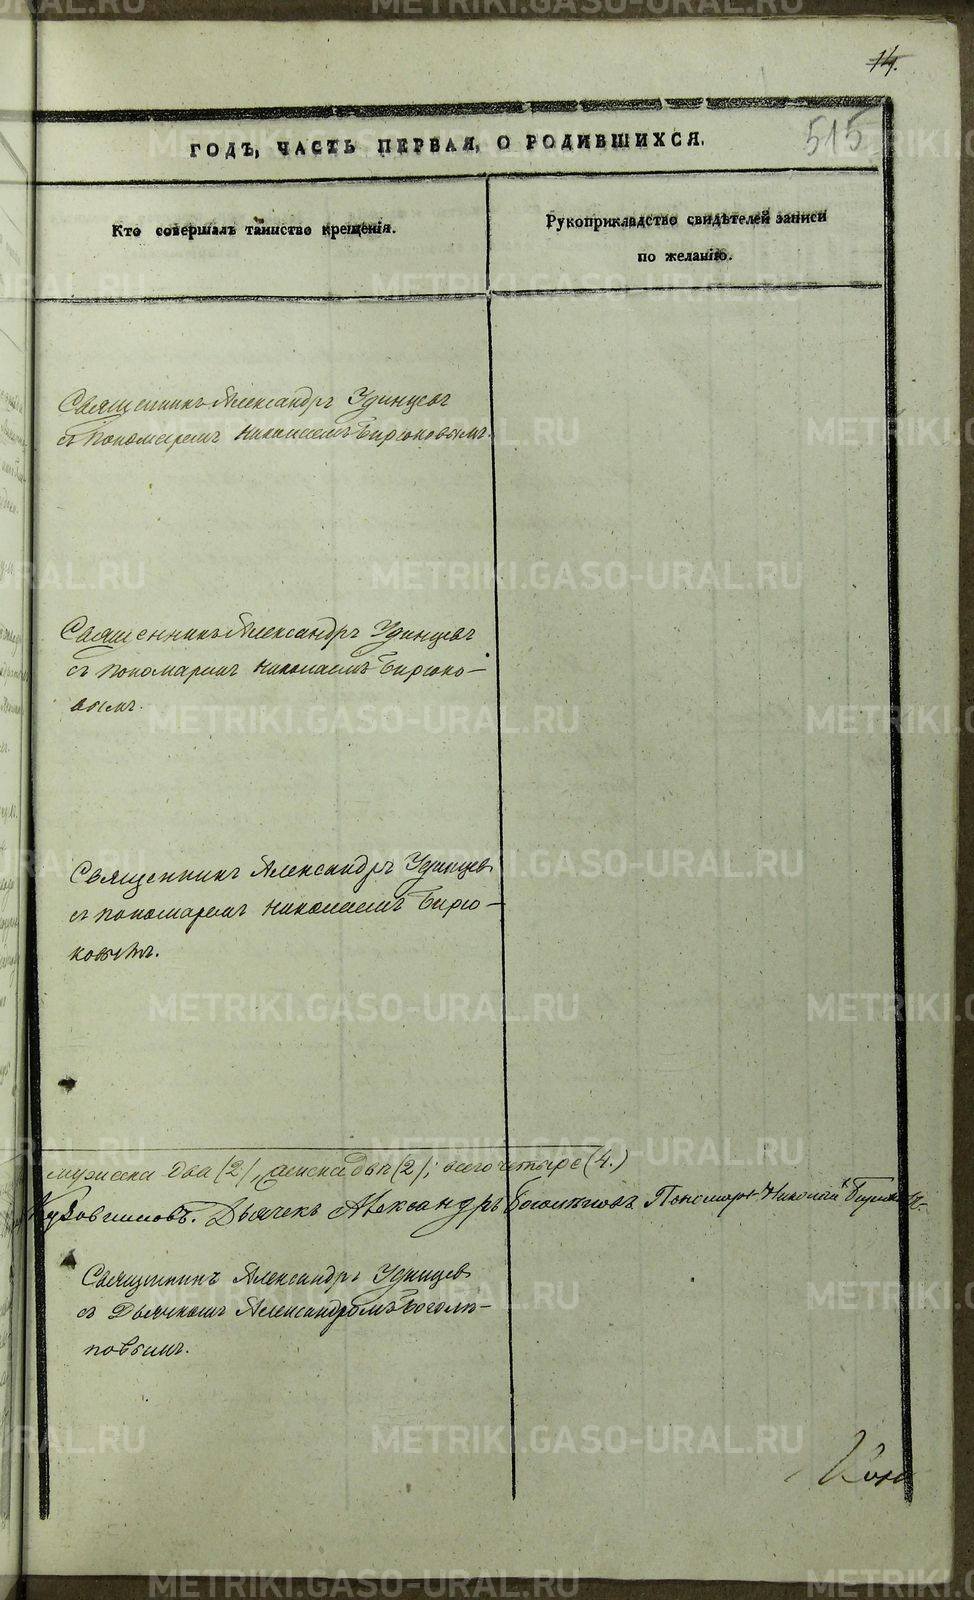 14.
515
ГОДЪ, ЧАСТЬ ПЕРВАЯ, О РОДИВШИХСЯ.
Кто совершалъ таинство крещенія.
Рукоприкладство свидѣтелей записи
по желанію.
Священникъ Александръ Удинцевъ
съ пономаремъ Николаемъ Бирюковымъ.
Священникъ Александръ Удинцевъ
съ пономаремъ Николаемъ Бирюко-
вымъ.
Священникъ Александръ Удинцевъ
съ пономаремъ Николаемъ Бирю-
ковымъ.
мужеска два (2), женска двѣ (2); всего четыре (4.)
Дьячекъ Александръ Боголѣповъ Пономарь Николай Бирюковъ.
Священникъ Александръ Удинцевъ
съ Дьячкомъ Александромъ Боголѣ-
повымъ.
METRIKI.GASO-URAL.RU